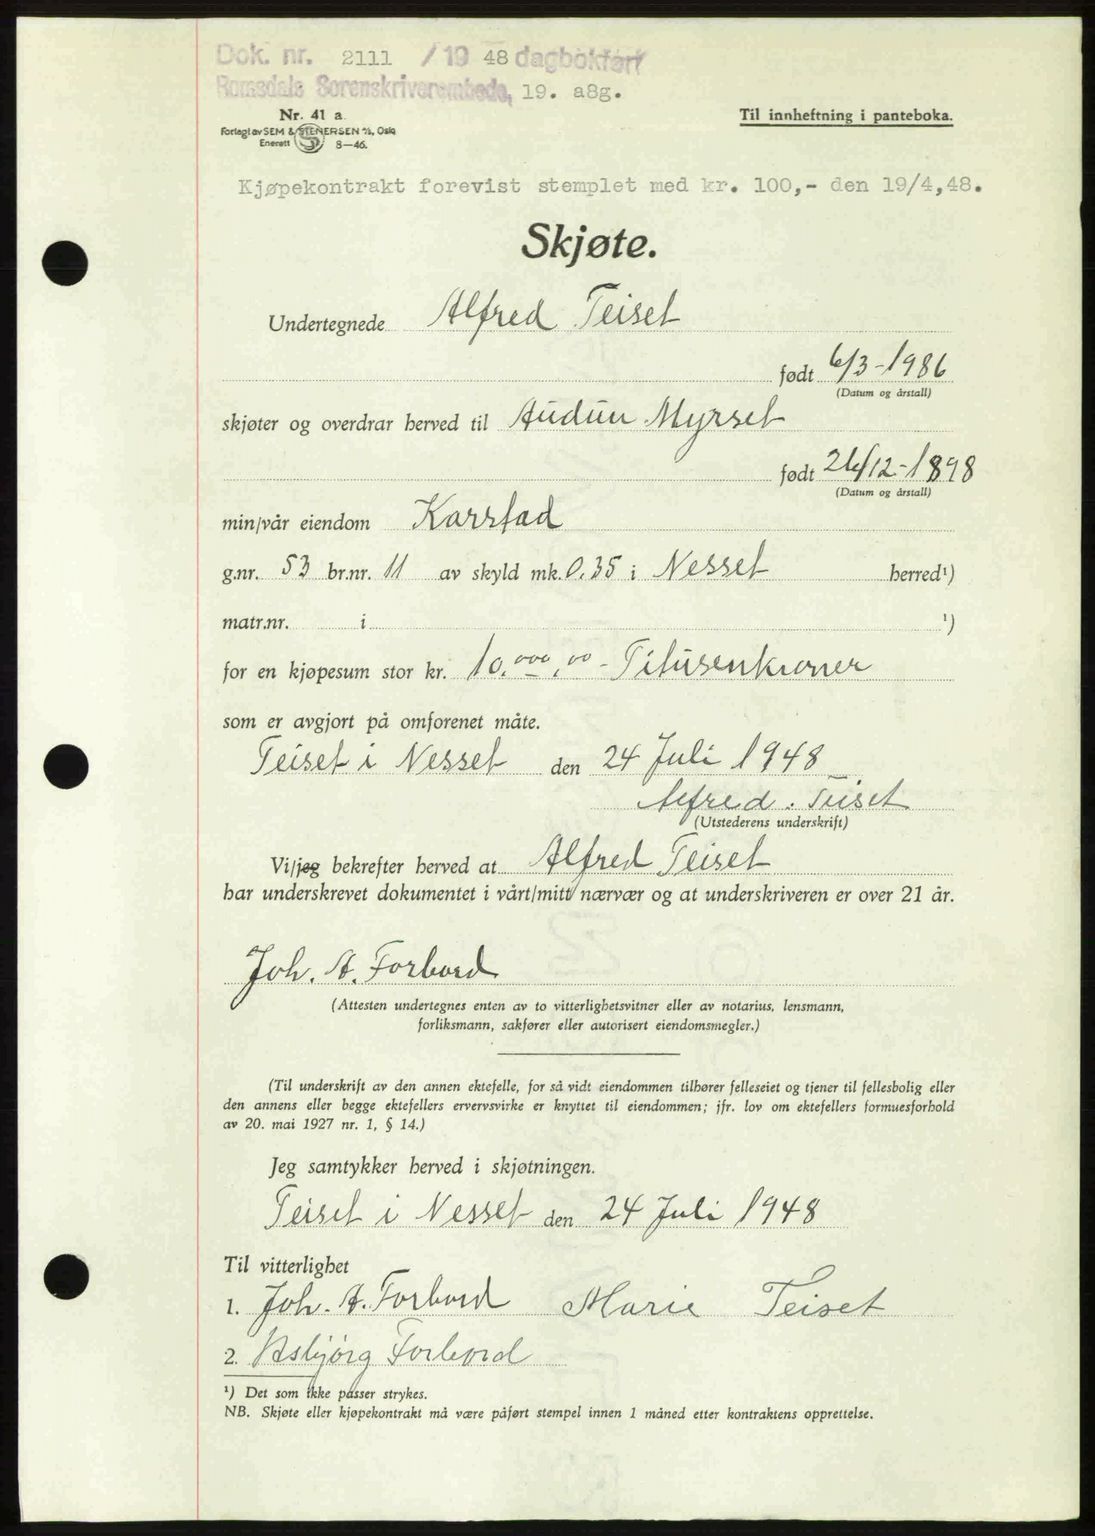 Dok. nr. 2111 / 19 48 dagbokført
Romsdals Sorenskriverembede, 19. a8g.
Nr. 41 a.
Forlagt av SEM & STENERSEN A/S, Oslo
Enerett 8—46.
Til innheftning i panteboka.
Kjøpekontrakt forevist stemplet med kr. 100,- den 19/4,48.
Skjøte.
Undertegnede Alfred Teiset
født 6/3-1986
(Datum og årstall)
skjøter og overdrar herved til Audun Myrset
født 26/12-1898
(Datum og årstall)
min/vår eiendom Karstad
g.nr. 53 br.nr. 11 av skyld mk. 0.35 i Nesset herred¹)
matr.nr. i ¹)
for en kjøpesum stor kr. 10.000,00 - Titusenkroner
som er avgjort på omforenet måte.
Teiset i Nesset den 24 Juli 1948
Alfred. Teiset
(Utstederens underskrift)
Vi/jeg bekrefter herved at Alfred Teiset
har underskrevet dokumentet i vårt/mitt nærvær og at underskriveren er over 21 år.
Joh. A. Forbord
(Attesten undertegnes enten av to vitterlighetsvitner eller av notarius, lensmann,
forliksmann, sakfører eller autorisert eiendomsmegler.)
(Til underskrift av den annen ektefelle, for så vidt eiendommen tilhører felleseiet og tjener til fellesbolig eller
den annens eller begge ektefellers ervervsvirke er knyttet til eiendommen; jfr. lov om ektefellers formuesforhold
av 20. mai 1927 nr. 1, § 14.)
Jeg samtykker herved i skjøtningen.
Teiset i Nesset den 24 Juli 1948
Til vitterlighet
1. Joh. A. Forbord Marie Teiset
2. Asbjørg Forbord
¹) Det som ikke passer strykes.
NB. Skjøte eller kjøpekontrakt må være påført stempel innen 1 måned etter kontraktens opprettelse.